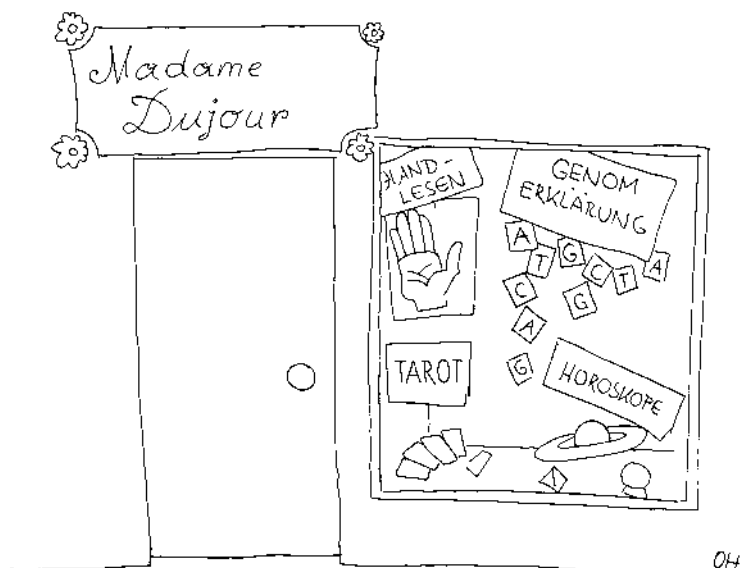 Madame
Dujour
HAND-
LESEN
GENOM
ERKLÄRUNG
A
T
G
C
T
A
C
G
A
G
TAROT
HOROSKOPE
1
OH